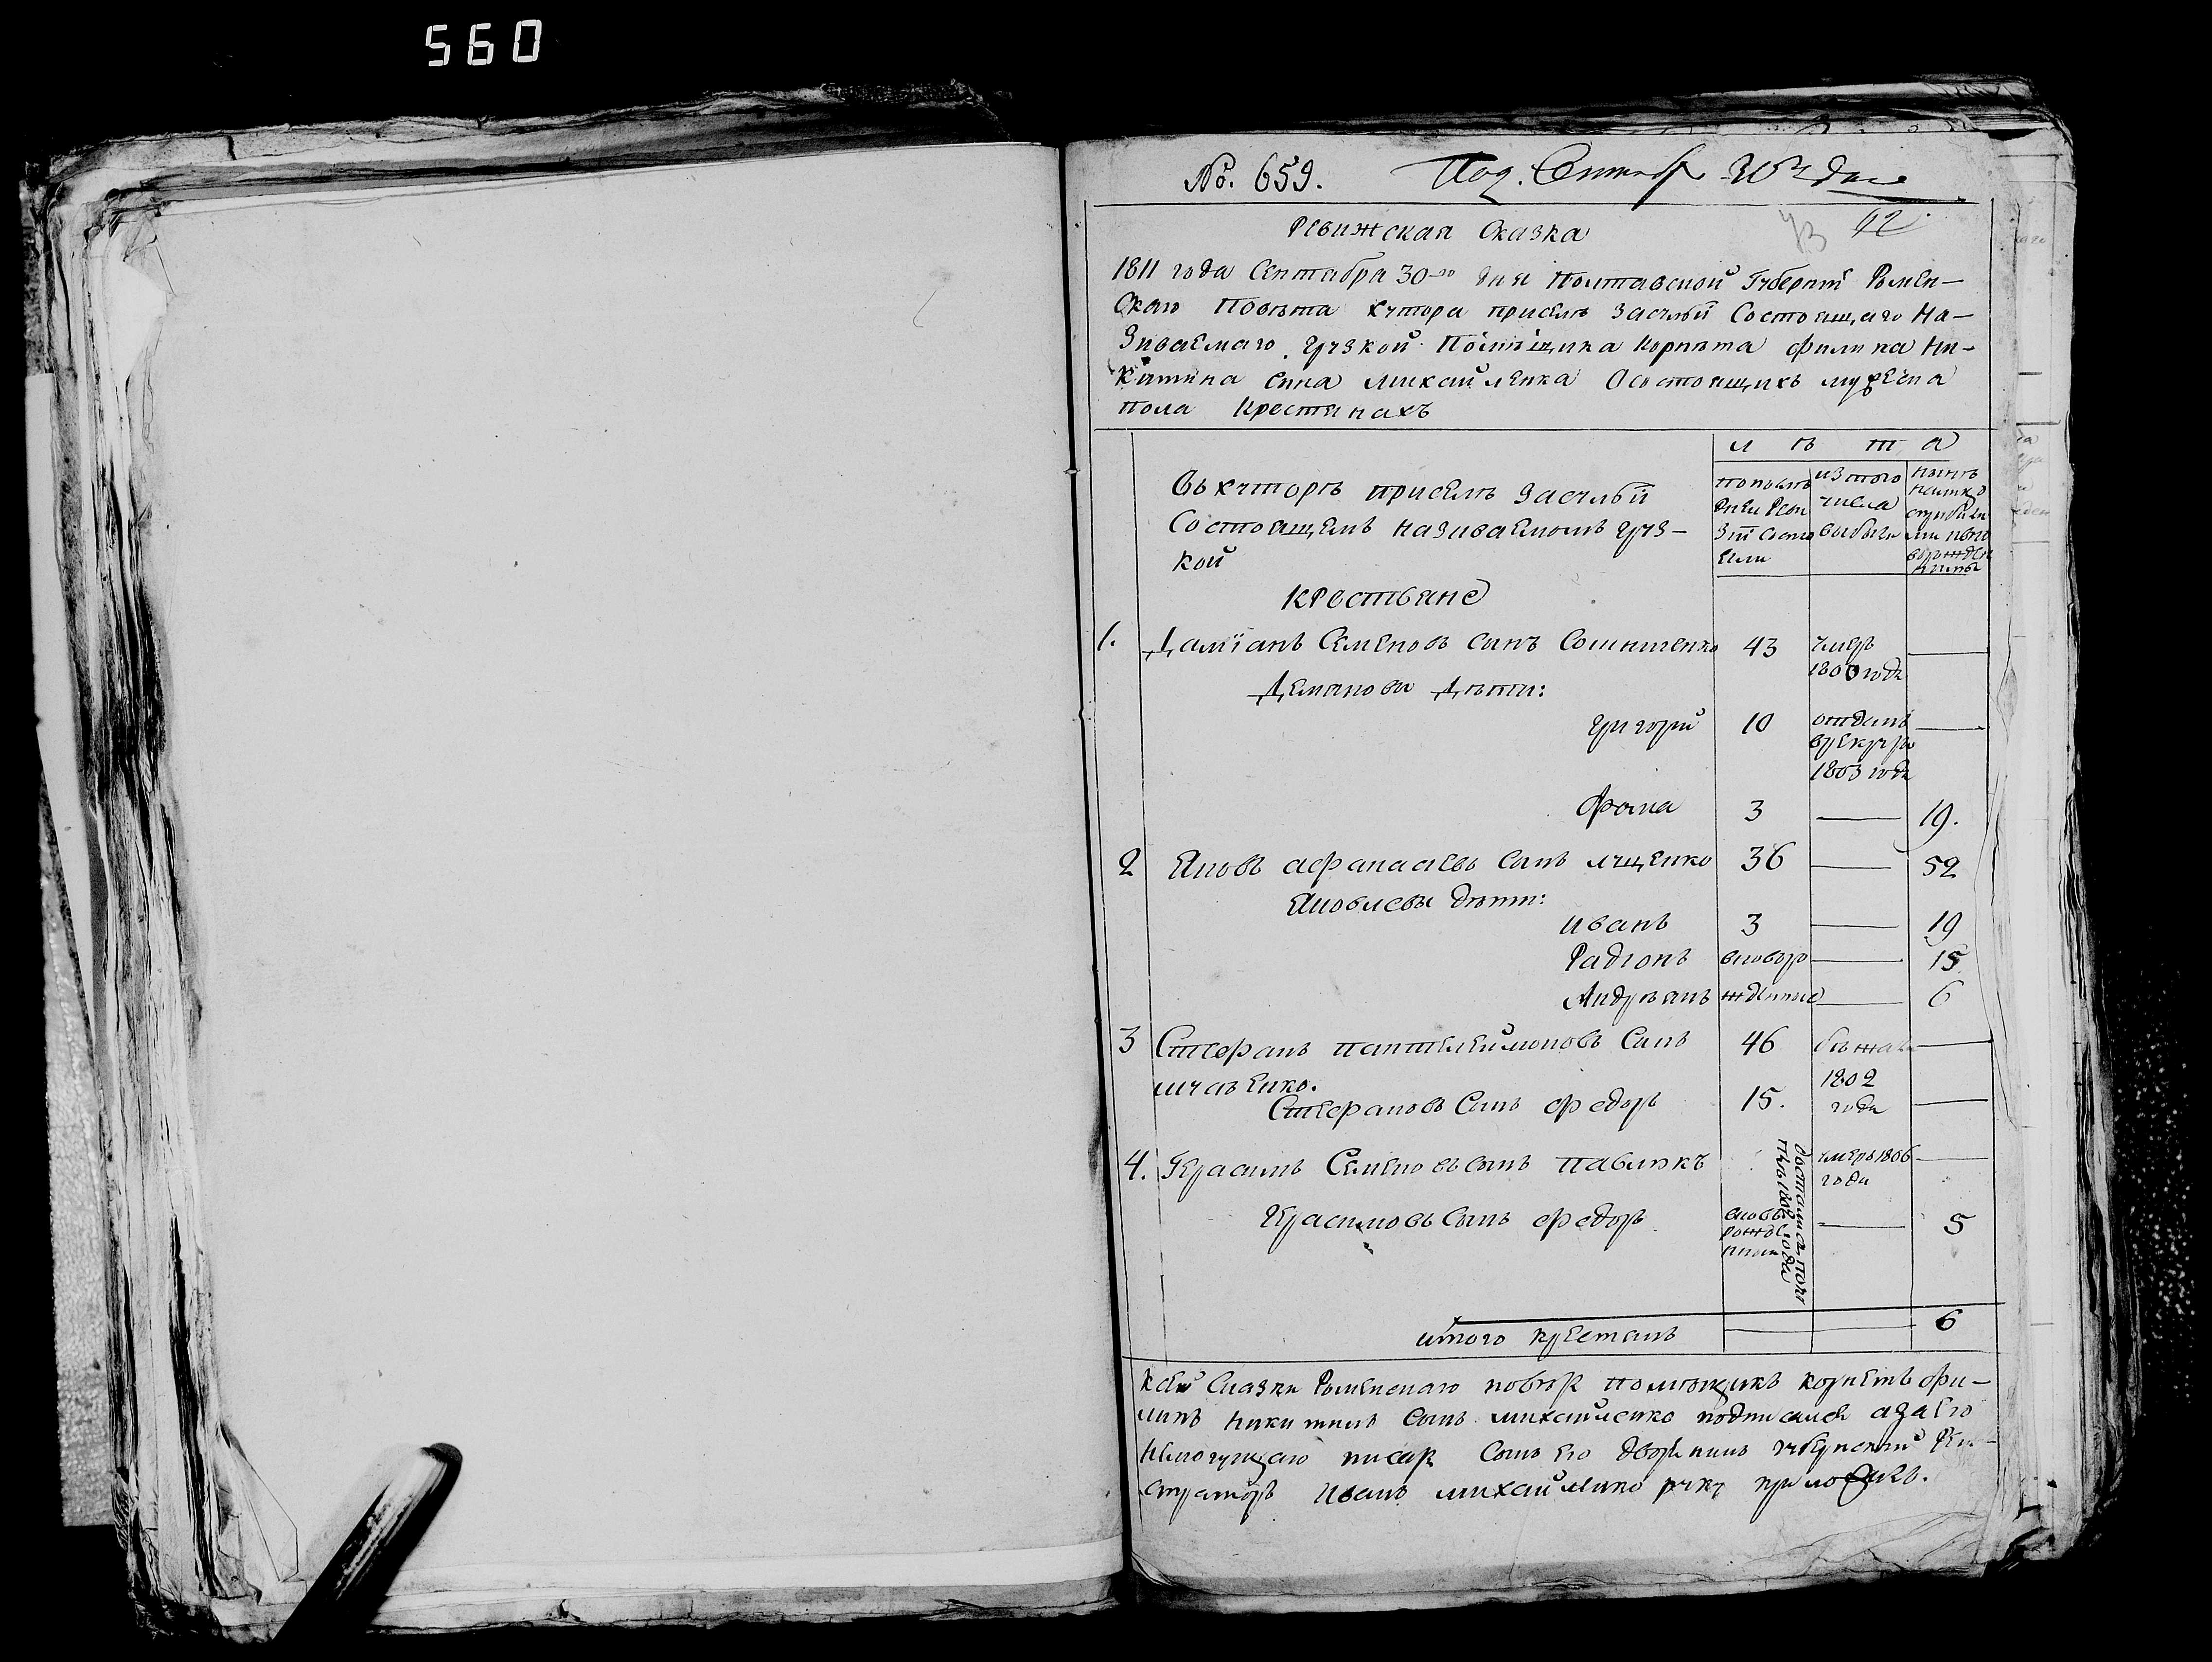 560
No. 659. Под. Сентяб 30го дня
Ревижская Сказка
42
1811 года Сентабря 30-го дня Полтавской Губернїи Ромен-
скаго Повѣта хутора приселѣ Засульи Состоящаго На-
зиваемаго Грузкой Помѣщика Корнета филипа Ни-
китина сина михайленка Осостоящихъ мужеска
пола Крестянахъ
лѣта
въ хуторѣ приселѣ Засульи
Состоящемъ називаемомъ Груз-
кой
попослѣ
дней Реви
зїи состо
яли
изтого
числа
выбыли
нынѣ
налицо
Крестьяне
1. Дамїанъ Семеновъ синъ 43 умеръ —
1800 года
Демяновы Дѣти:
Григорий 10 отданъ —
врекруты
1803 года
Фома 3 — 19.
2 Яковъ афанасиевъ синъ лущенко 36 — 52
Яковлевы дѣти:
иванъ 3 — 19
Радионъ вноворо — 15
Андреянъ жденние — 6
3 Стефанъ пантелеймоновъ Синъ 46 бѣжали —
1802
года
Стефановъ Синъ федоръ 15. —
4. Герасимъ Семеновъ синъ павлюкъ умеръ 1806 —
года
достался поку
пкѣ 180 года
Герасимовъ Синъ федоръ вновь — 5
рожде
нний
итого крестянъ — 6
Ксей Сказки Роменскаго повѣта помѣщикъ корнетъ фи-
липъ никитинъ синъ михайленко подписался азаего
немогущаго писат Синъ его дворянинъ губернский Реги-
страторъ Иванъ михайленко руку приложилъ.